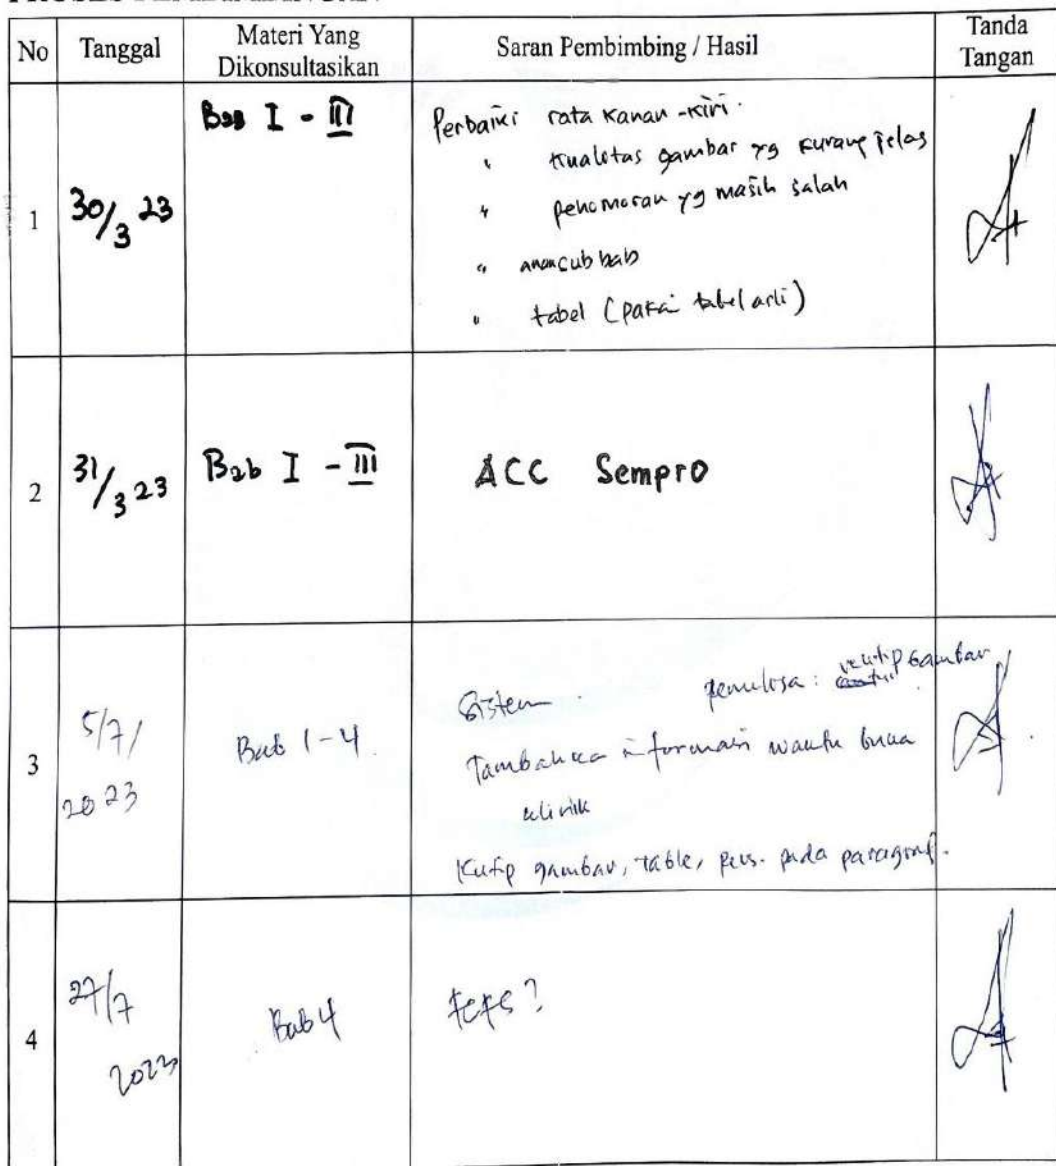 No Tanggal Materi Yang Dikonsultasikan Saran Pembimbing / Hasil Tanda Tangan
1 30/3 23 Bab I - III Perbaiki rata kanan-kiri.
" kualitas gambar yg kurang jelas
" penomoran yg masih salah
" subbab
" tabel (pakai tabel asli)
2 31/3 23 Bab I - III ACC Sempro
3 5/7/2023 Bab 1-4 Sistem penulisa: kutip gambar
Tambahkan informasi waktu buka
klinik
Kutip gambar, table, pers. pada paragraf.
4 27/7 2023 Bab 4